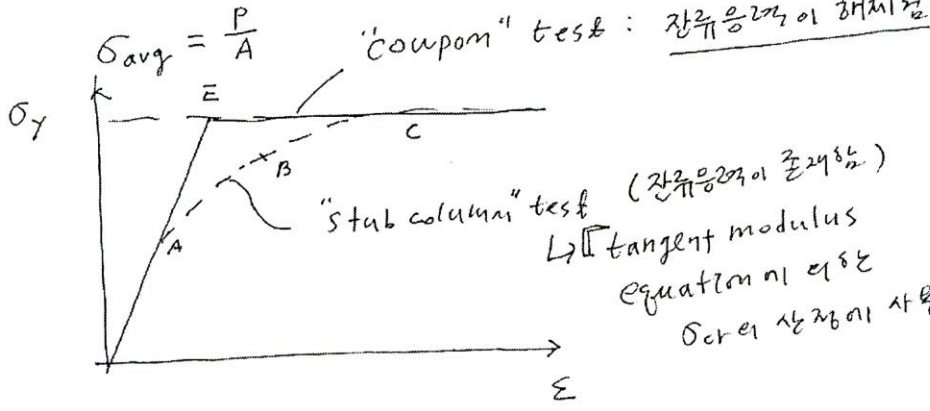 σavg = P/A
"coupon" test : 잔류응력이 해제됨
σy
E
C
B
A
"stub column" test (잔류응력이 존재함)
↳ tangent modulus
equation에 의한
σcr의 산정에 사용
ε